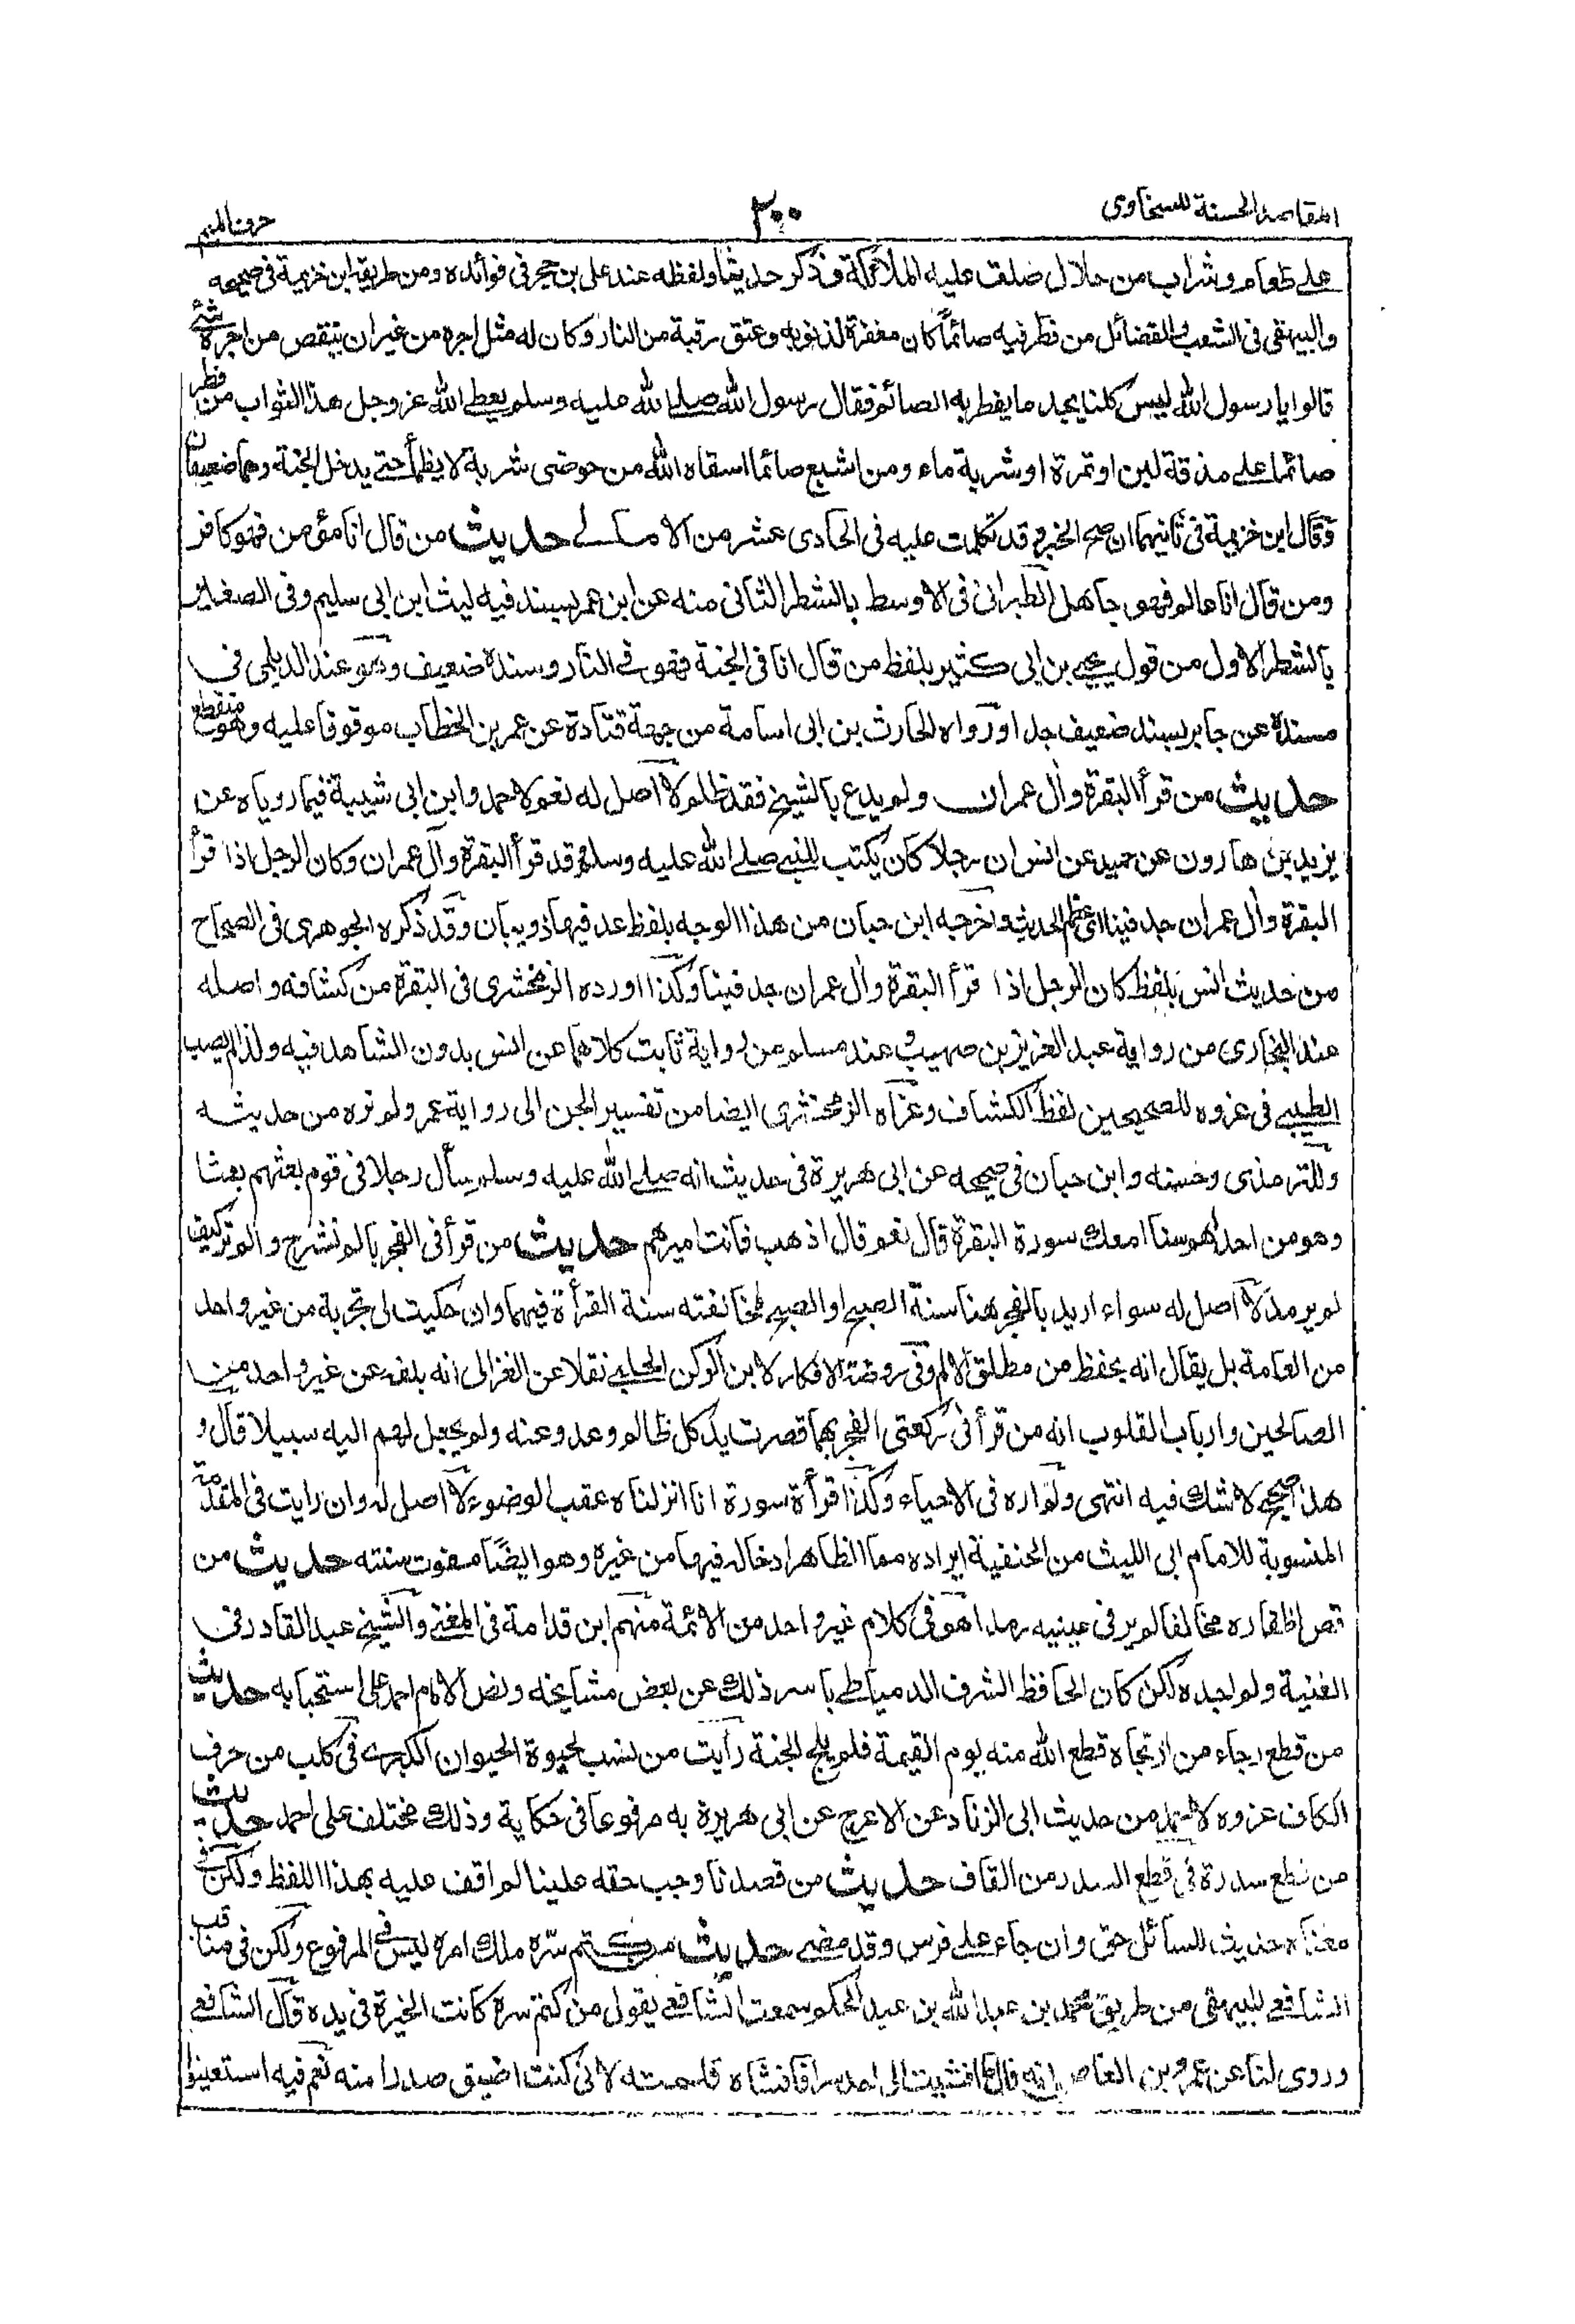 المقاصد الحسنة للسخاوى
٢٠٠
حرف الميم
على طعام وشراب من حلال صلت عليه الملائكة وذكر حديثا ولفظه عند على بن حجر فى فوائده ومن طريقه ابن خزيمة فى صحيحه
والبيهقى فى الشعب والفضائل من فطر فيه صائماً كان مغفرة لذنوبه وعتق رقبة من النار وكان له مثل اجره من غير ان ينتقص من اجره شئ
قالوا يا رسول الله ليس كلنا يجد ما يفطر به الصائم فقال رسول الله صلى الله عليه وسلم يعطى الله عز وجل هذا الثواب من فطر
صائما على مذقة لبن او تمرة او شربة ماء ومن اشبع صائما اسقاه الله من حوضى شربة لا يظمأ حتى يدخل الجنة وهما ضعيفان
وقال ابن خزيمة فى ثانيهما ان صح الخبر قد تكلمت عليه فى الحادى عشر من الامالى حديث من قال انا مؤمن فهو كافر
ومن قال انا عالم فهو جاهل الطبرانى فى الاوسط بالشطر الثانى منه عن ابن عمر بسند فيه ليث ابن ابى سليم وفى الصغير
بالشطر الاول من قول يحيى بن ابى كثير بلفظ من قال انا فى الجنة فهو فى النار وسنده ضعيف وهو عند الديلمى فى
مسنده عن جابر بسند ضعيف جدا ورواه الحارث بن ابى اسامة من جهة قتادة عن عمر بن الخطاب موقوفا عليه وهو منقطع
حديث من قرأ البقرة وآل عمران ولم يدع بالشيخ فقد ظلم لا اصل له نعم لاحمد وابن ابى شيبة فيما روياه عن
يزيد بن هارون عن حميد عن انس ان رجلا كان يكتب للنبى صلى الله عليه وسلم قد قرأ البقرة وآل عمران وكان الرجل اذا قرأ
البقرة وآل عمران جد فينا اى عظم الحديث واخرجه ابن حبان من هذا الوجه بلفظ عد فيها ذو بان وقد ذكره الجوهرى فى الصحاح
من حديث انس بلفظ كان الرجل اذا قرأ البقرة وآل عمران جد فينا وكذا اورده الزمخشرى فى البقرة من كشافه واصله
عند البخارى من رواية عبد العزيز بن صهيب وعند مسلم من رواية ثابت كلاهما عن انس بدون الشاهد فيه ولذا لم يصب
الطيبى فى عزوه للصحيحين لفظ الكشاف وعزاه الزمخشرى ايضا من تفسير الجن الى رواية عمر ولم نره من حديثه
وللترمذى وحسنه وابن حبان فى صحيحه عن ابى هريرة فى حديث انه صلى الله عليه وسلم سأل رجلا فى قوم بعثهم بعثا
وهو من احدثهم سنا امعك سورة البقرة قال نعم قال اذهب فانت اميرهم حديث من قرأ فى الفجر بالم نشرح والم تر كيف
لم يرمد لا اصل له سواء اريد بالفجر هنا سنة الصبح او الصبح لمخالفته سنة القرأة فيهما وان حكيت لى تجربة من غير واحد
من العامة بل يقال انه يحفظ من مطلق الالم وفى روضة الافكار لابن الركن الحلبى نقلا عن الغزالى انه بلغه عن غير واحد من
الصالحين وارباب القلوب انه من قرأ فى ركعتى الفجر بهما قصرت يد كل ظالم وعدو عنه ولم يجعل لهم اليه سبيلا قال و
هذا صحيح لا شك فيه انتهى ولم اره فى الاحياء وكذا قرأة سورة انا انزلناه عقب الوضوء لا اصل له وان رايت فى المقدمة
المنسوبة للامام ابى الليث من الحنفية ايراده مما الظاهر ادخاله فيها من غيره وهو ايضًا مفوت سنته حديث من
قص اظفاره مخالفا لم ير فى عينيه رمدا هو فى كلام غير واحد من الائمة منهم ابن قدامة فى المغنى والشيخ عبد القادر فى
الغنية ولم اجده لكن كان الحافظ الشرف الدمياطى ياسر ذلك عن بعض مشايخه ونص الامام احمد على استحبابه حديث
من قطع رجاء من ارتجاه قطع الله منه يوم القيمة فلم يلج الجنة رأيت من نسب لحيوة الحيوان الكبرى فى كلب من حرف
الكاف عزوه لاحمد من حديث ابى الزناد عن الاعرج عن ابى هريرة به مرفوعا فى حكاية وذلك مختلف على احمد حديث
من قطع سدرة فى قطع السدر من القاف حديث من قصدنا وجب حقه علينا لم اقف عليه بهذا اللفظ ولكن فى
معناه حديث للسائل حق وان جاء على فرس وقد مضى حديث من كتم سره ملك امره ليس فى المرفوع ولكن فى مناقب
الشافعى للبيهقى من طريق محمد بن عبد الله بن عبد الحكم سمعت الشافعى يقول من كتم سره كانت الخيرة فى يده قال الشافعى
وروى لنا عن عمرو بن العاص انه قال ما افشيت الى احد سرا فافشاه فلمته لانى كنت اضيق صدرا منه نعم فيه استعينوا